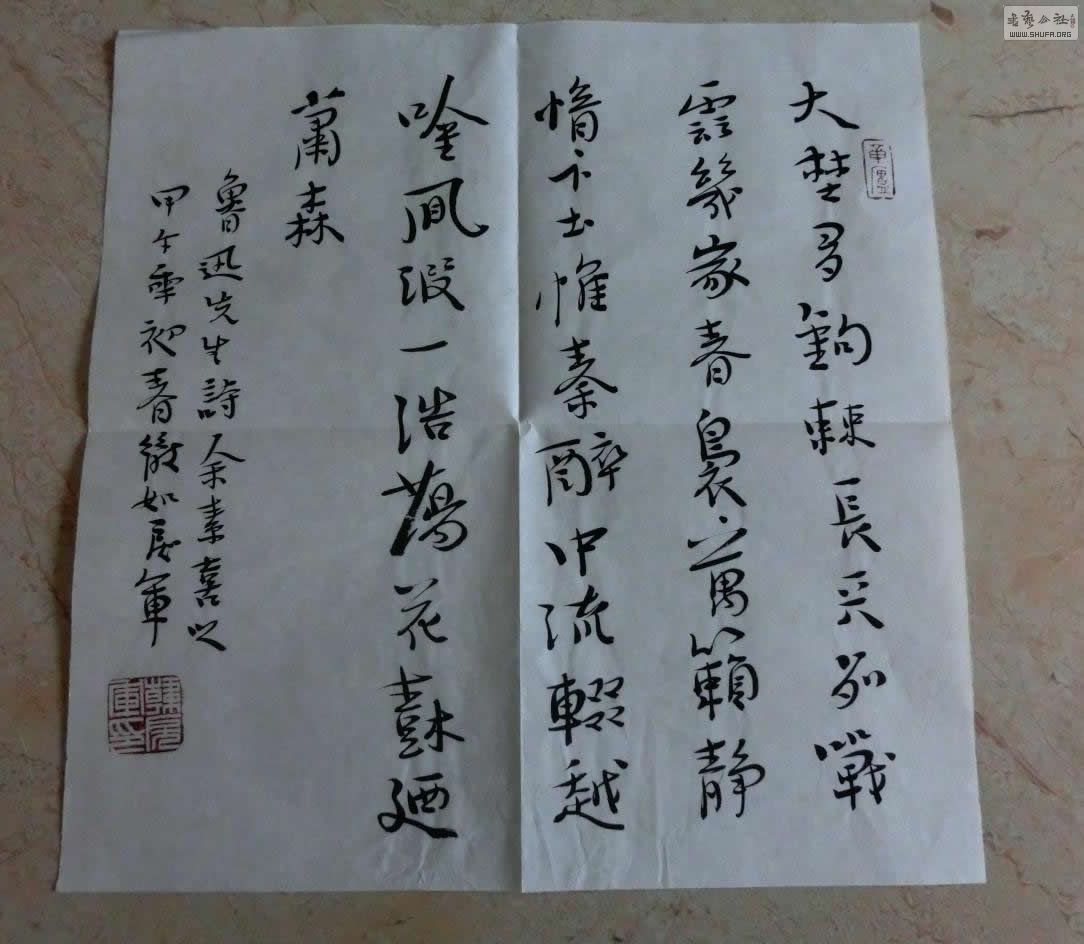 大埜多鉤棘長天列戰
雲幾家春裊々萬籟靜
愔々下土惟秦醉中流輟越
吟風波一浩蕩花樹廼
蕭森
魯迅先生詩余素喜之
甲午年初春 如 軍
書藝公社
WWW.SHUFA.ORG